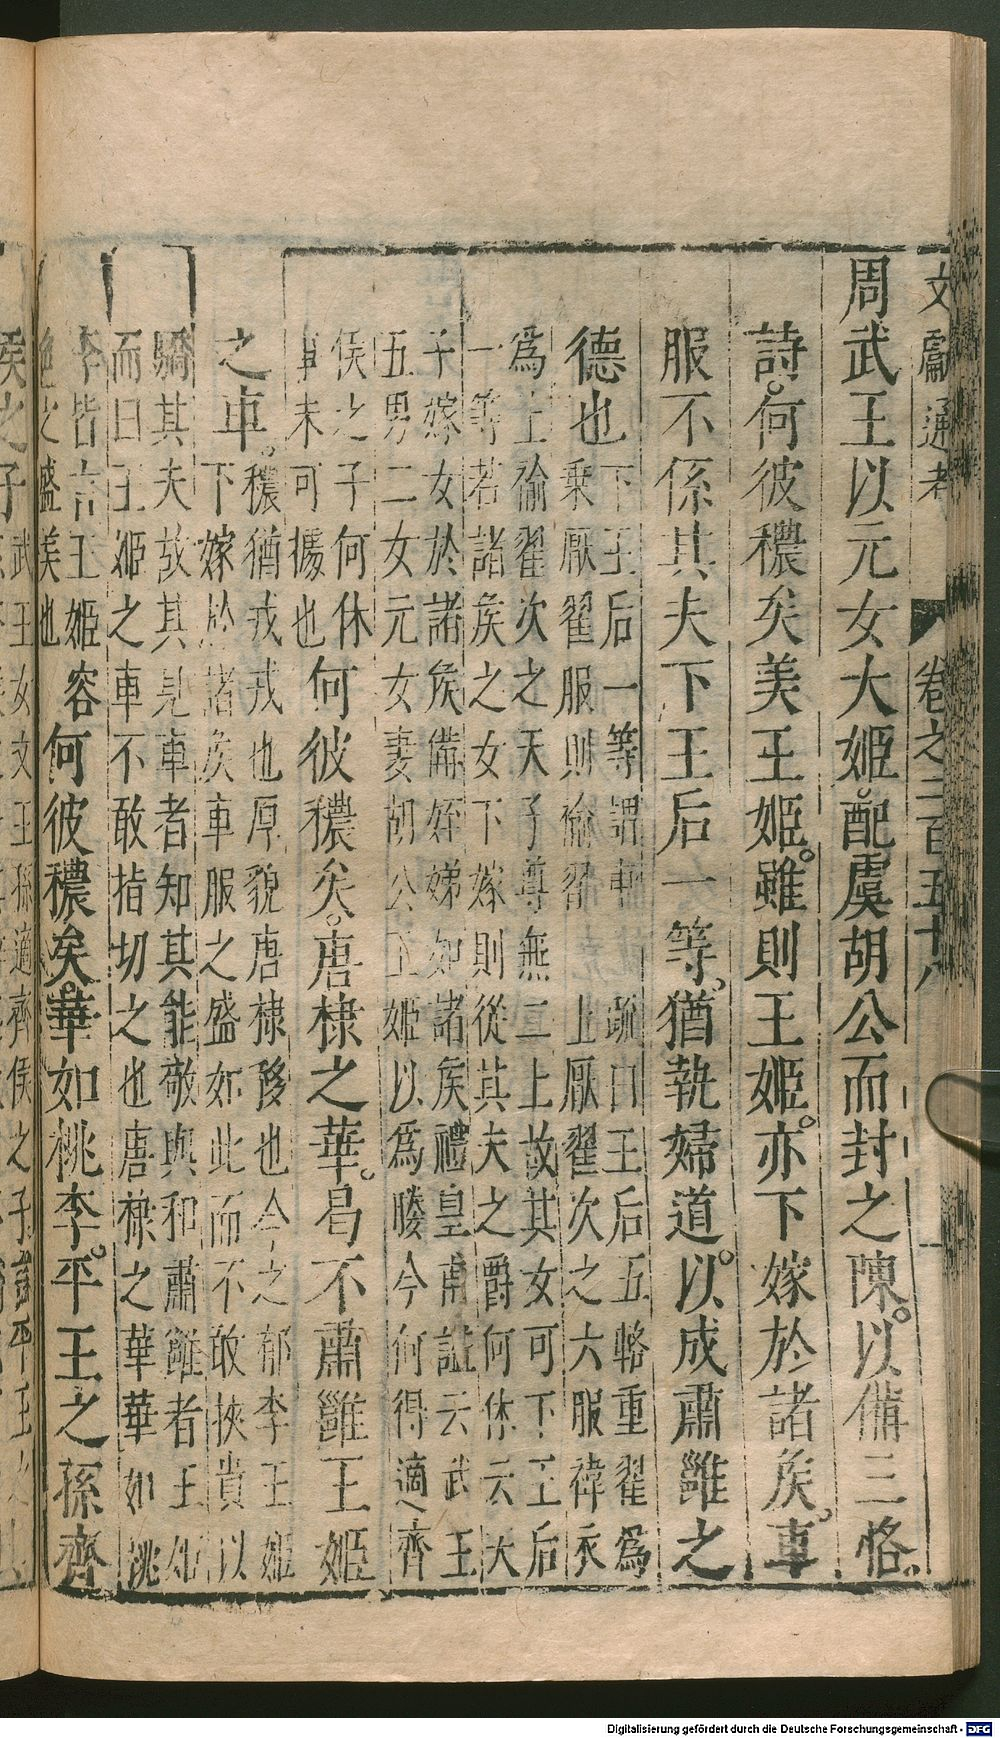 文獻通考 卷之二百五十八 一
周武王以元女大姬。配虞胡公而封之陳。以備三恪。
詩。何彼穠矣美王姬。雖則王姬。亦下嫁於諸矦。車
服不係其夫下王后一等。猶執婦道。以成肅雝之
德也下王后一等謂車
乗厭翟服則褕翟
疏曰王后五輅重翟爲
上厭翟次之六服褘衣
爲上褕翟次之天子尊無二上故其女可下王后
一等若諸矦之女下嫁則從其夫之爵何休云天
子嫁女於諸矦備姪娣如諸矦禮皇甫謐云武王
五男二女元女妻胡公王姬以爲媵今何得適齊
侯之子何休
事未可據也
何彼穠矣。唐棣之華。曷不肅雝王姬
之車。
穠猶戎戎也厚貌唐棣栘也今之郁李王姬
下嫁於諸矦車服之盛如此而不敢挾貴以
驕其夫故其見車者知其能敬與和肅雝者王姬
而曰王姬之車不敢指切之也唐棣之華華如桃
李皆言王姬容
艶之盛美也
何彼穠矣。華如桃李。平王之孫齊
矦之子
武王女文王孫適齊侯之子